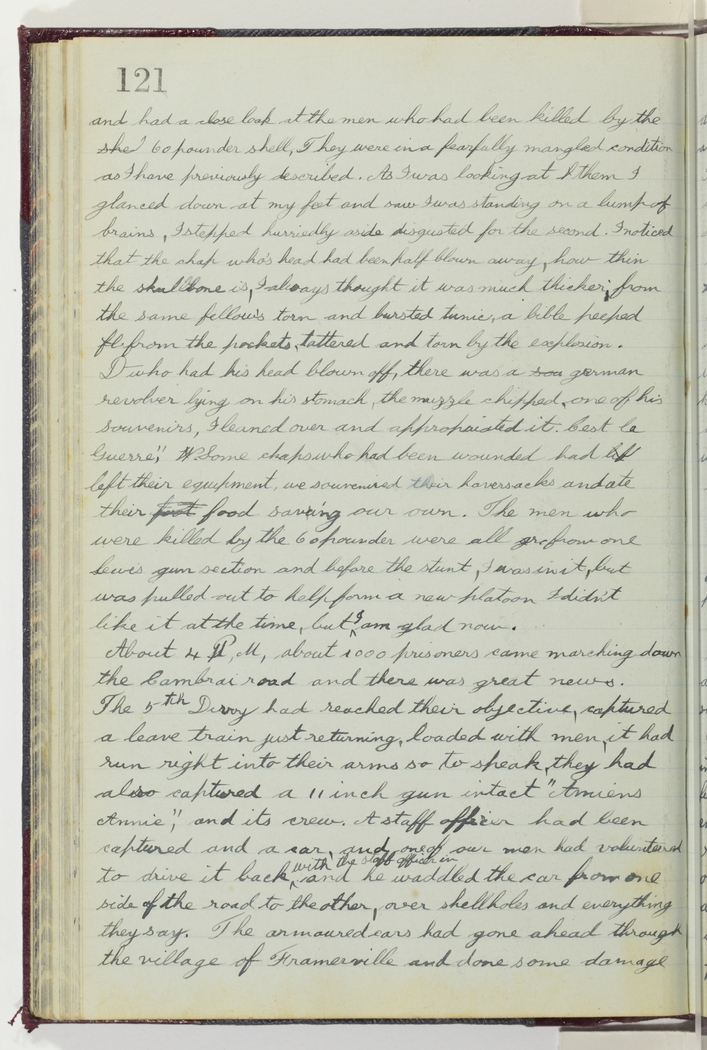 121
and had a close look at the men who had been killed by the
she' 60 pounder shell, They were in a fearfully mangled condition
as I have previously described. As I was looking at I them I
glanced down at my feet and saw I was standing on a lump of
brains, I stepped hurriedly aside disgusted for the second. I noticed
that the chap who's head had been half blown away, how thin
the skullbone is, I always thought it was much thicker, from
the same fellow's torn and bursted tunic, a bible peeped
fl from the pockets, tattered and torn by the explosion.
D who had his head blown off, there was a sou german
revolver lying on his stomach, the muzzle chipped, one of his
souvenirs, I leaned over and appropriated it. Cest la
Guerre", W Some chaps who had been wounded had lef
left their equipment, we souvenired their haversacks and ate
their foot food saving our own. The men who
were killed by the 60 pounder were all gr from one
Lewis gun section and before the stunt, I was in it, but
was pulled out to help form a new platoon I didn't
like it at the time, but I am glad now.
About 4 P,M, about 1000 prisoners came marching down
the Cambrai road and there was great news.
The 5th Divvy had reached their objective, captured
a leave train just returning, loaded with men, it had
run right into their arms so to speak, they had
also captured a 11 inch gun intact "Amiens
Annie", and its crew. A staff officer had been
captured and a car, and one of our men had volunteered
to drive it back, with the staff officer in and he waddled the car from one
side of the road to the other, over shellholes and everything
they say. The armoured cars had gone ahead through
the village of Framerville and done some damage